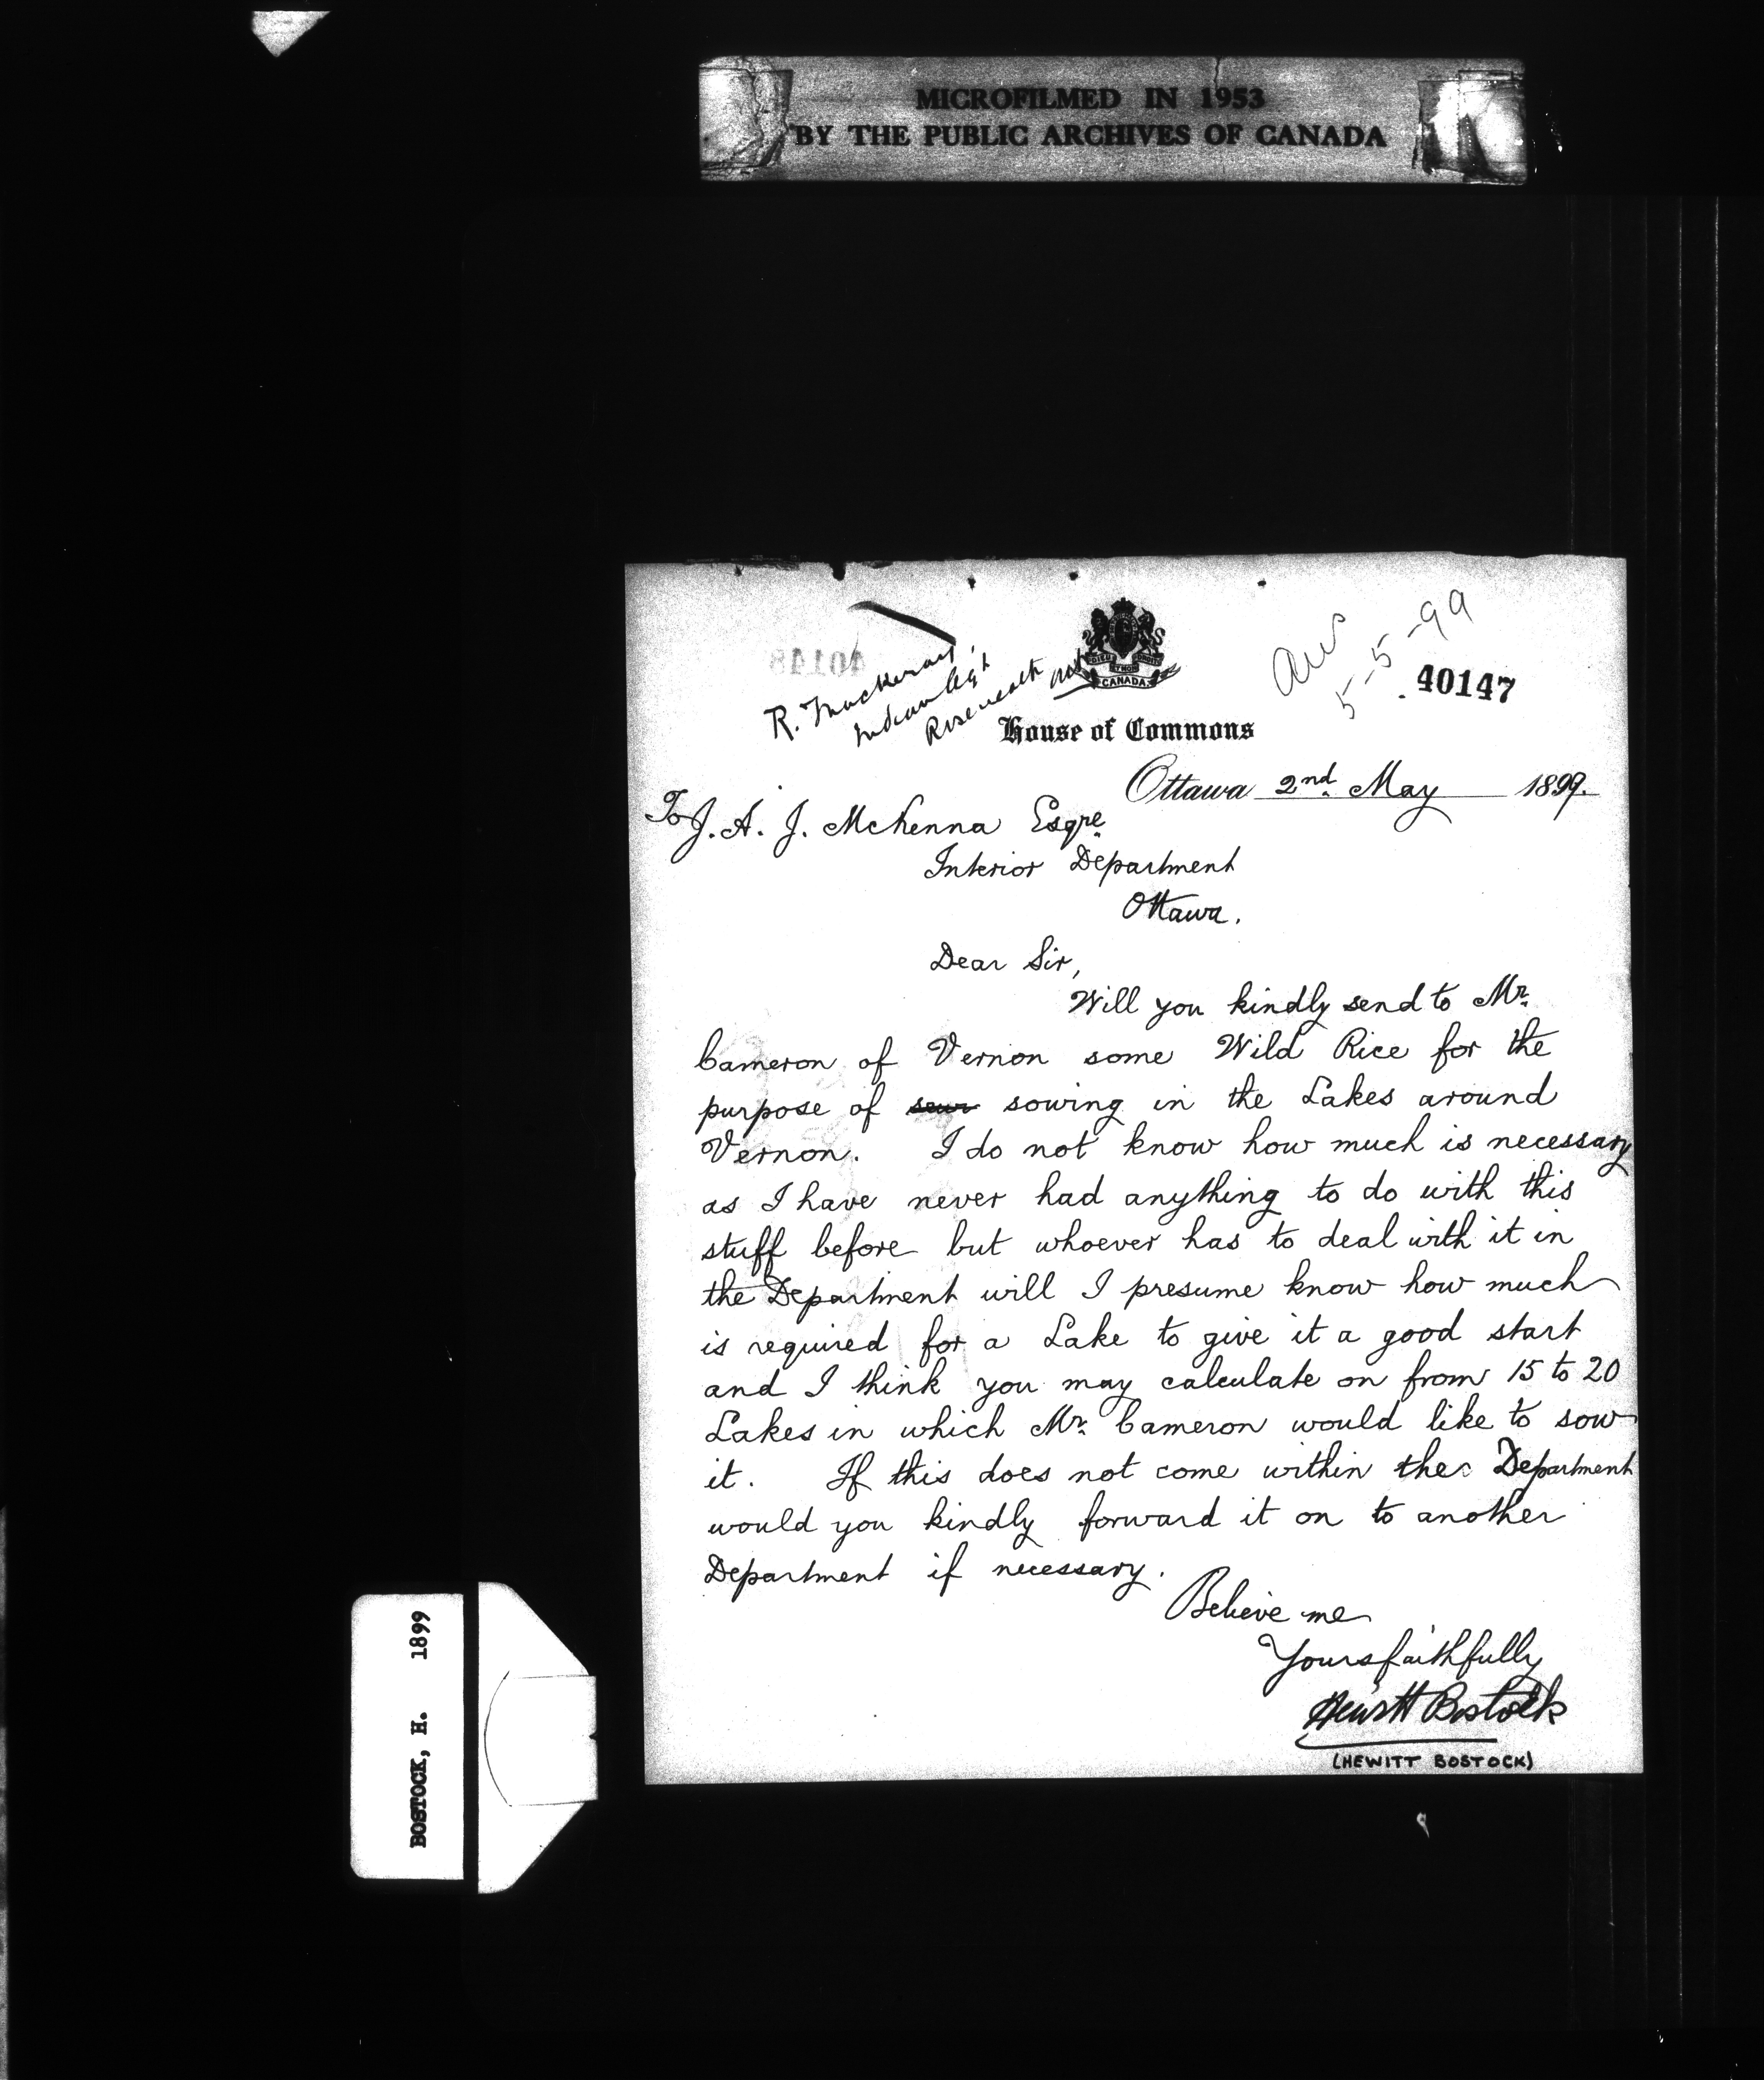 MICROFILMED IN 1953
BY THE PUBLIC ARCHIVES OF CANADA
R.
Indian Agt
Roseneath Ont
DIEU ET MON DROIT
CANADA
Ans
5-5-99
40147
House of Commons
Ottawa 2nd. May 1899.
To J. A. J. McKenna Esqre
Interior Department
Ottawa.
Dear Sir,
Will you kindly send to Mr.
Cameron of Vernon some Wild Rice for the
purpose of sowing in the Lakes around
Vernon. I do not know how much is necessary
as I have never had anything to do with this
stuff before but whoever has to deal with it in
the Department will I presume know how much
is required for a Lake to give it a good start
and I think you may calculate on from 15 to 20
Lakes in which Mr. Cameron would like to sow
it. If this does not come within the Department
would you kindly forward it on to another
Department if necessary.
Believe me
Yours faithfully
Hewitt Bostock
(HEWITT BOSTOCK)
BOSTOCK, H. 1899